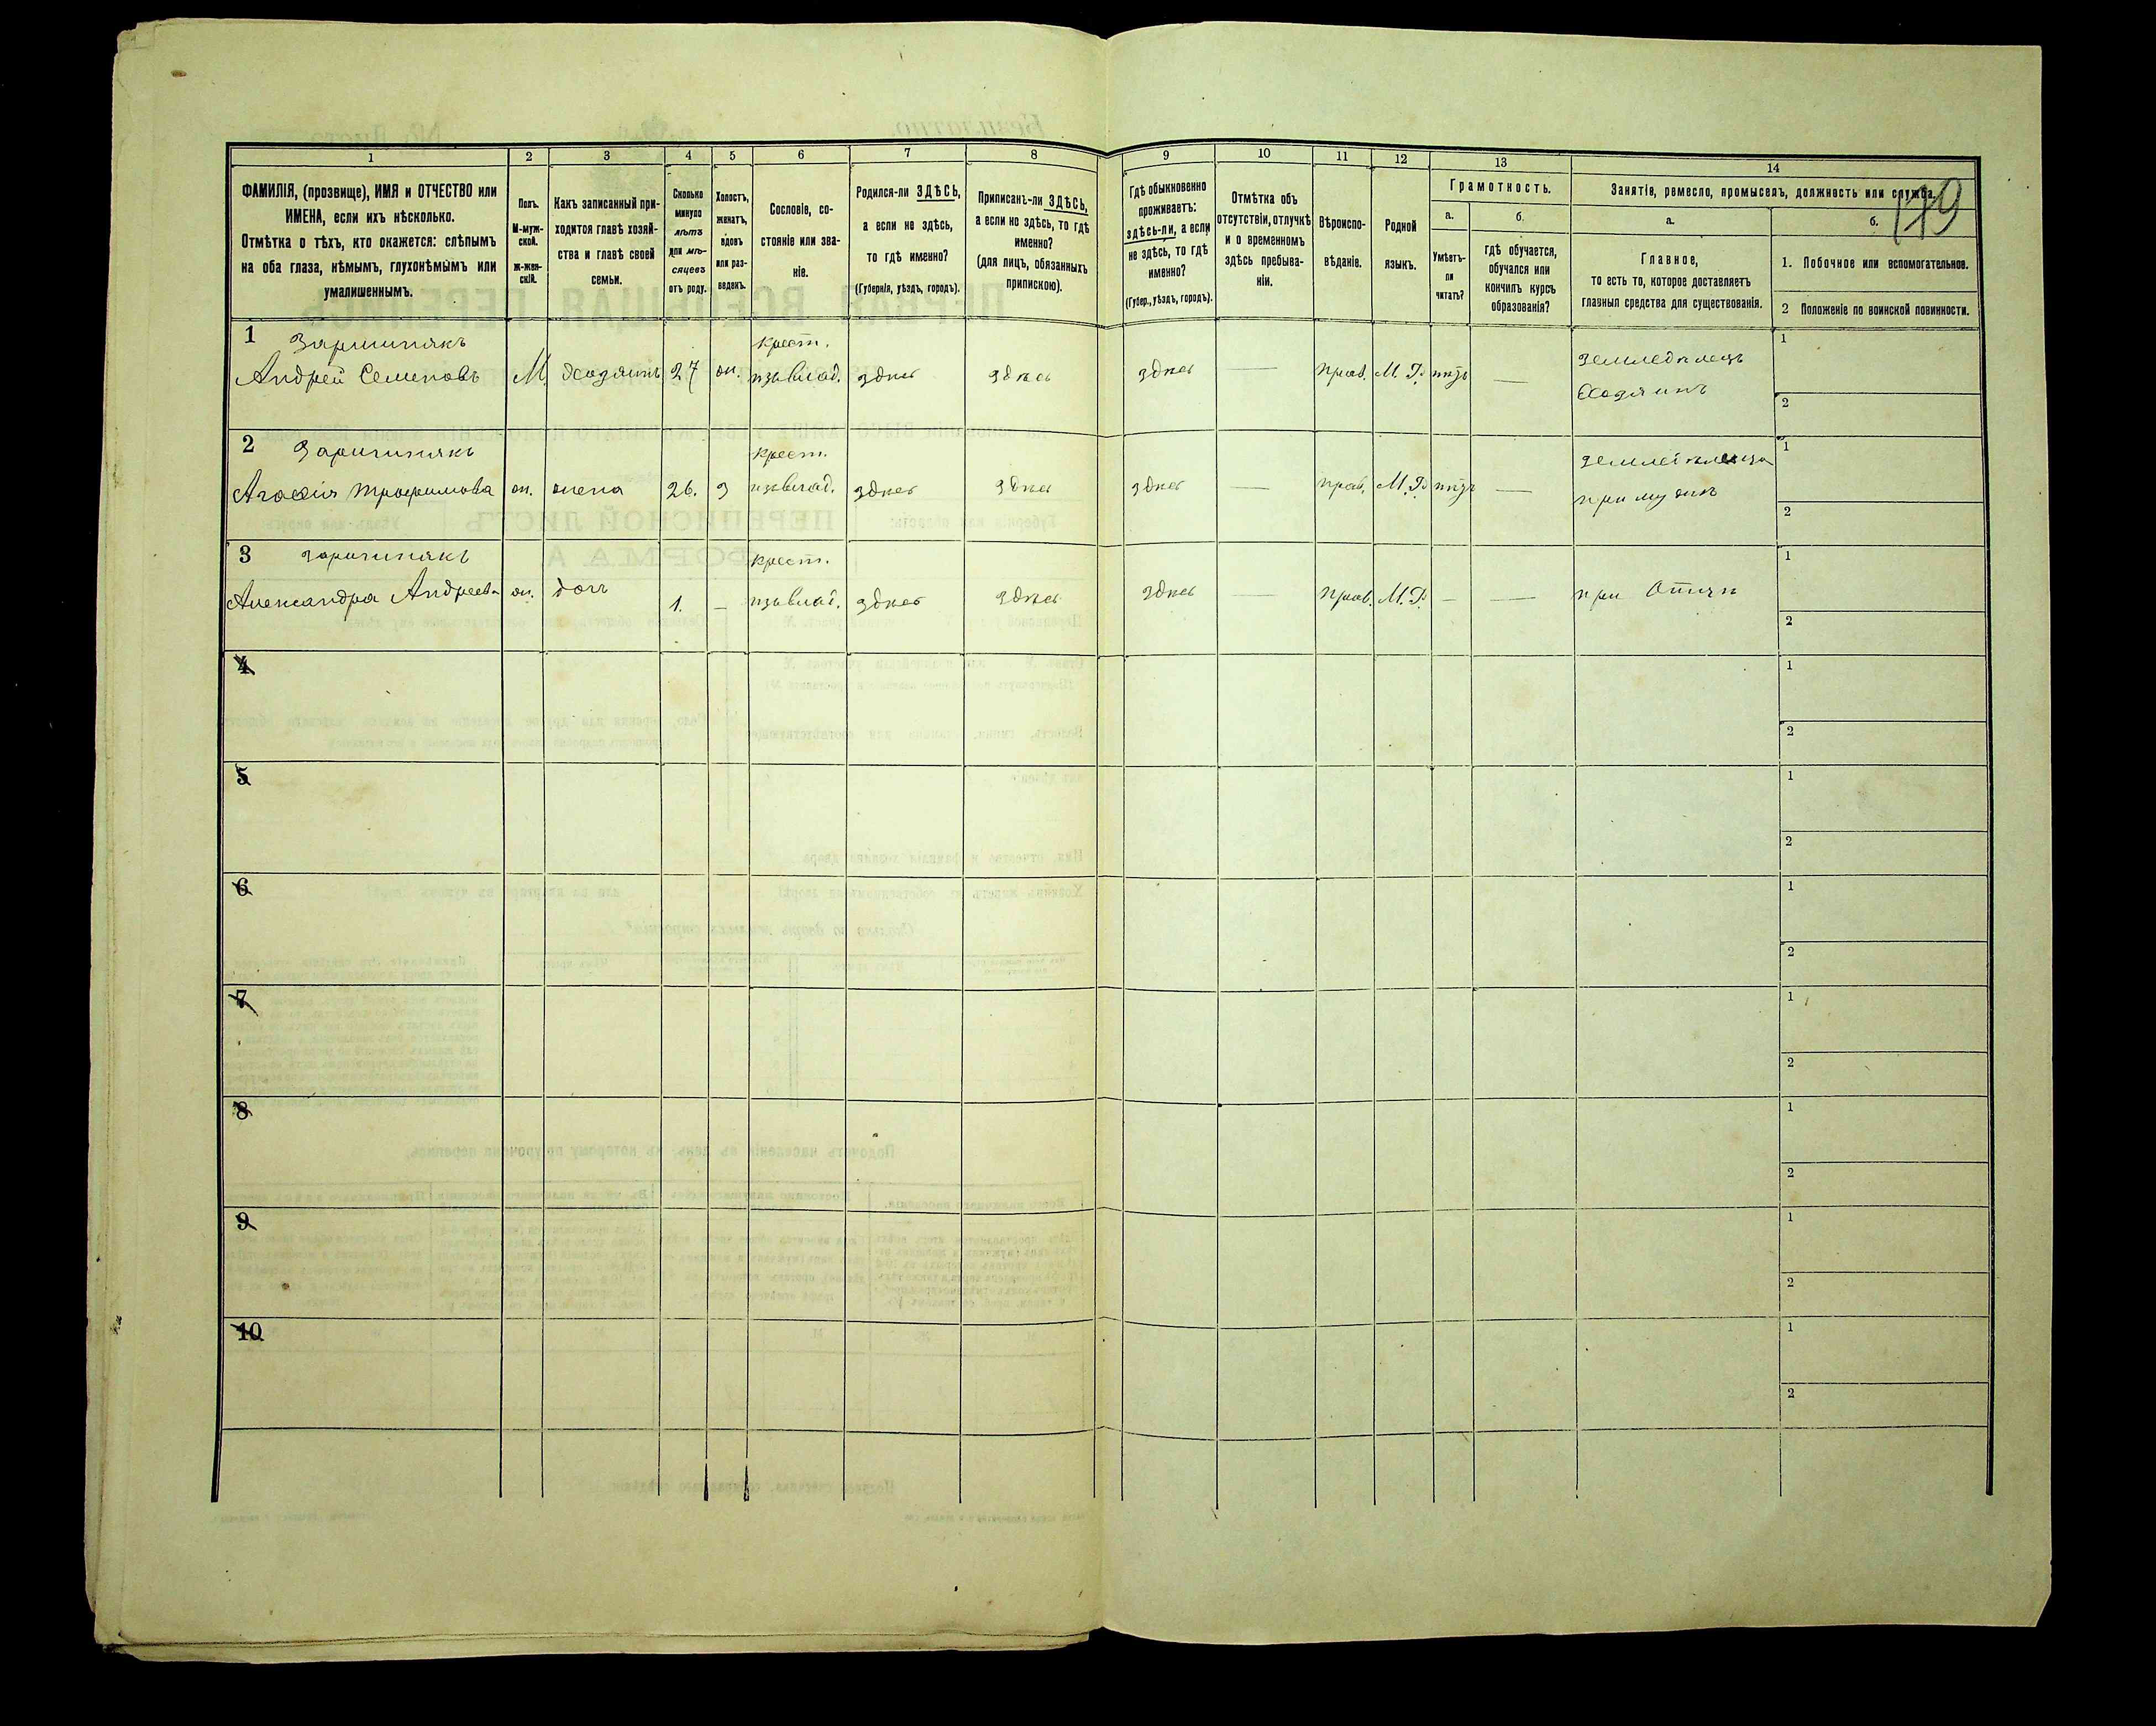 179
1 2 3 4 5 6 7 8 9 10 11 12 13 14
ФАМИЛІЯ, (прозвище), ИМЯ и ОТЧЕСТВО или
ИМЕНА, если ихъ нѣсколько.
Отмѣтка о тѣхъ, кто окажется: слѣпымъ
на оба глаза, нѣмымъ, глухонѣмымъ или
умалишеннымъ.
Полъ.
М-муж-
ской.
ж-жен-
скій.
Какъ записанный при-
ходится главѣ хозяй-
ства и главѣ своей
семьи.
Сколько
минуло
лѣтъ
или мѣ-
сяцевъ
отъ роду.
Холостъ,
женатъ,
вдовъ
или раз-
веденъ.
Сословіе, со-
стояніе или зва-
ніе.
Родился-ли ЗДѢСЬ,
а если не здѣсь,
то гдѣ именно?
(Губернія, уѣздъ, городъ).
Приписанъ-ли ЗДѢСЬ,
а если не здѣсь, то гдѣ
именно?
(для лицъ, обязанныхъ
припискою).
Гдѣ обыкновенно
проживаетъ:
здѣсь-ли, а если
не здѣсь, то гдѣ
именно?
(Губер., уѣздъ, городъ).
Отмѣтка объ
отсутствіи, отлучкѣ
и о временномъ
здѣсь пребыва-
ніи.
Вѣроиспо-
вѣданіе.
Родной
языкъ.
Грамотность.
а.
Умѣетъ-
ли
читать?
б.
гдѣ обучается,
обучался или
кончилъ курсъ
образованія?
Занятіе, ремесло, промыселъ, должность или служба.
а.
Главное,
то есть то, которое доставляетъ
главныя средства для существованія.
б.
1. Побочное или вспомогательное.
2 Положеніе по воинской повинности.
1 крест. 1
Андрей Семеновъ М. Хозяинъ 27 ж. изъ влад. здѣсь здѣсь здѣсь — прав. М. Р. нѣтъ — земледѣлецъ
Хозяинъ 2
2 крест. 1
Агафія Трофимова ж. жена 26. з изъ влад. здѣсь здѣсь здѣсь — прав. М. Р. нѣтъ —
при мужѣ 2
3 крест. 1
Александра Андреева ж. доч 1. — изъ влад. здѣсь здѣсь здѣсь — прав. М. Р. — — при Отцѣ
2
4 1
2
5 1
2
6 1
2
7 1
2
8 1
2
9 1
2
10 1
2